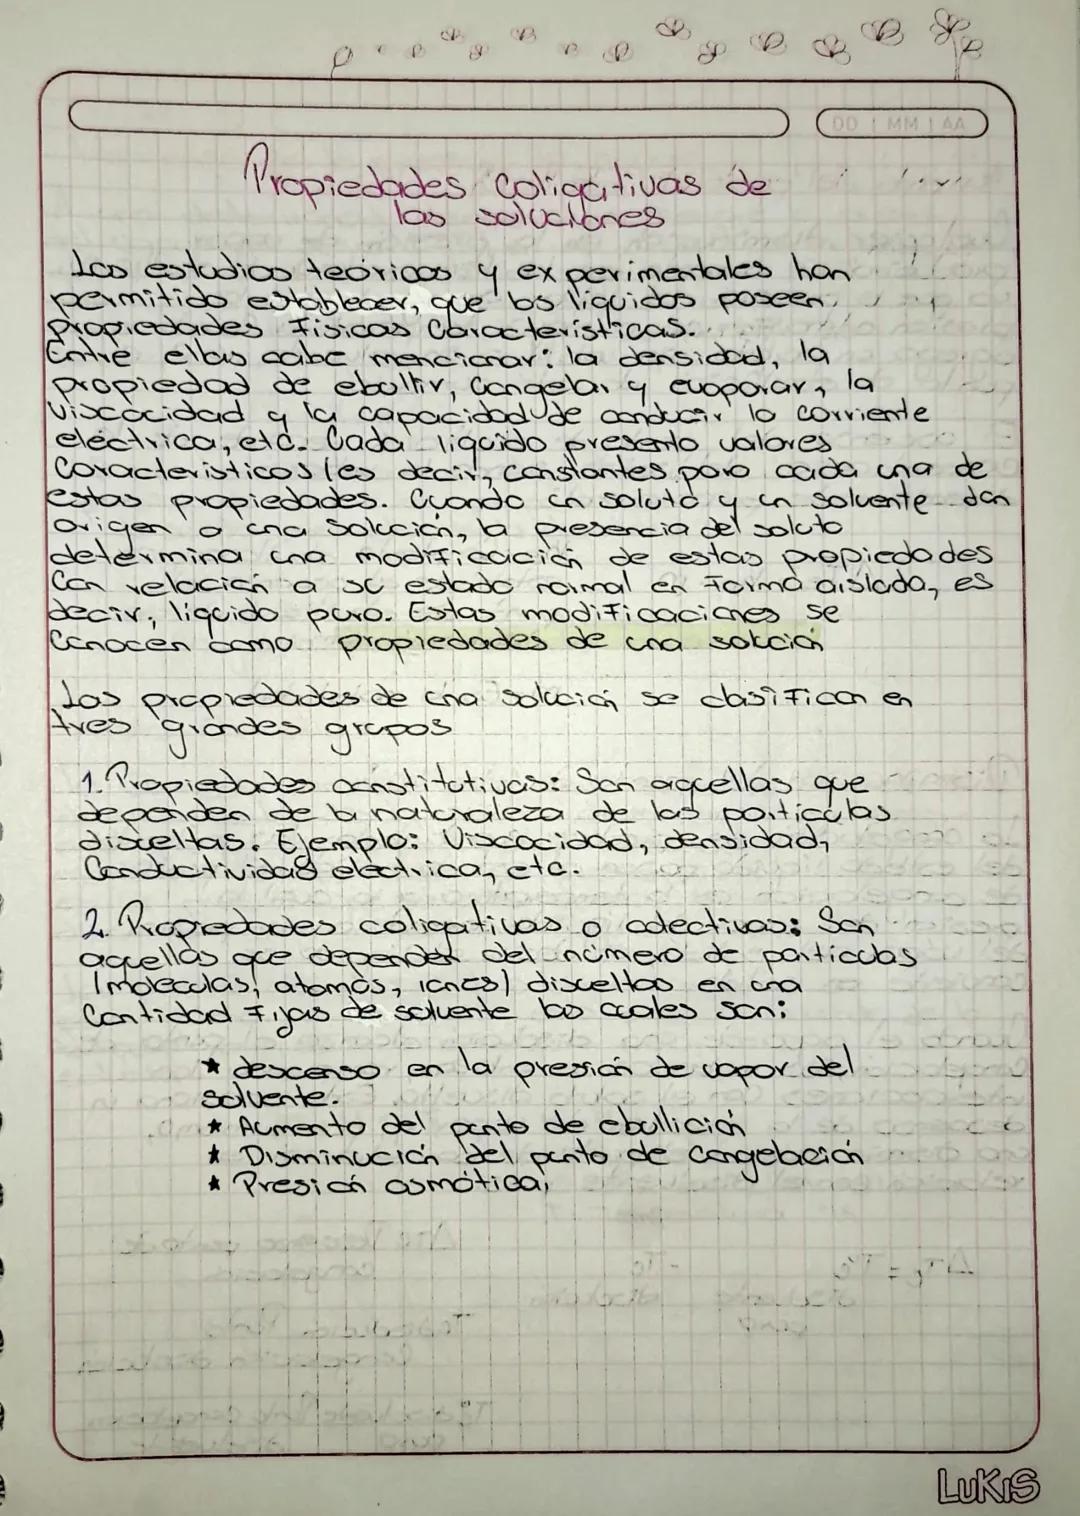 DD | MM | AA
Propiedades coligativas de
las soluciones
Los estudios teóricos y experimentales han
permitido establecer, que los líquidos poseen
propiedades Físicas Características.
Entre ellas cabe mencionar: la densidad, la
propiedad de ebullir, Congelar y evaporar, la
Viscocidad y la capacidad de conducir la corriente
eléctrica, etc. Cada líquido presenta valores
Característicos (es decir, constantes para cada una de
estas propiedades. Cuando un soluto y un solvente dan
origen a una Solución, la presencia del soluto
determina una modificación de estas propiedades
Con relación a su estado normal en Forma aislada, es
decir, líquido puro. Estas modificaciones se
Conocen como propiedades de una solución
Las propiedades de una solución se clasifican en
tres grandes grupos
1. Propiedades constitutivas: Son aquellas que
dependen de la naturaleza de las partículas
disueltas. Ejemplo: Viscocidad, densidad,
Conductividad eléctrica, etc.
2. Propiedades coligativas o colectivas: Son
aquellas que dependen del número de partículas
(moleculas, atomos, iones) disueltos en una
Cantidad Fijas de solvente los cuales son:
★ descenso en la presión de vapor del
solvente.
★ Aumento del punto de ebullición
★ Disminución del punto de congelación
★ Presión osmótica,
LUKIS